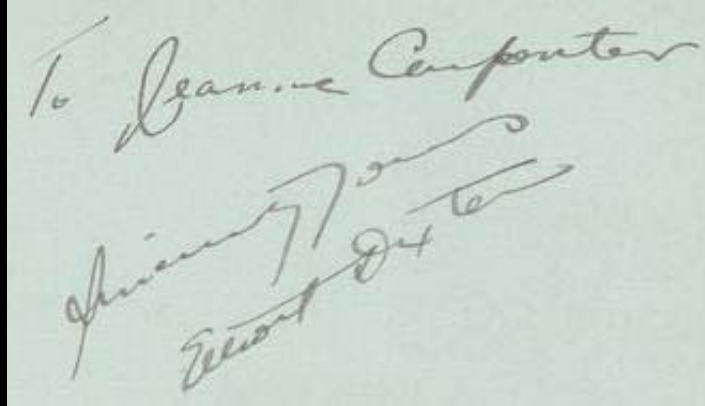 To Jeannie Carpenter
Sincerely Yours
Elliott Dexter